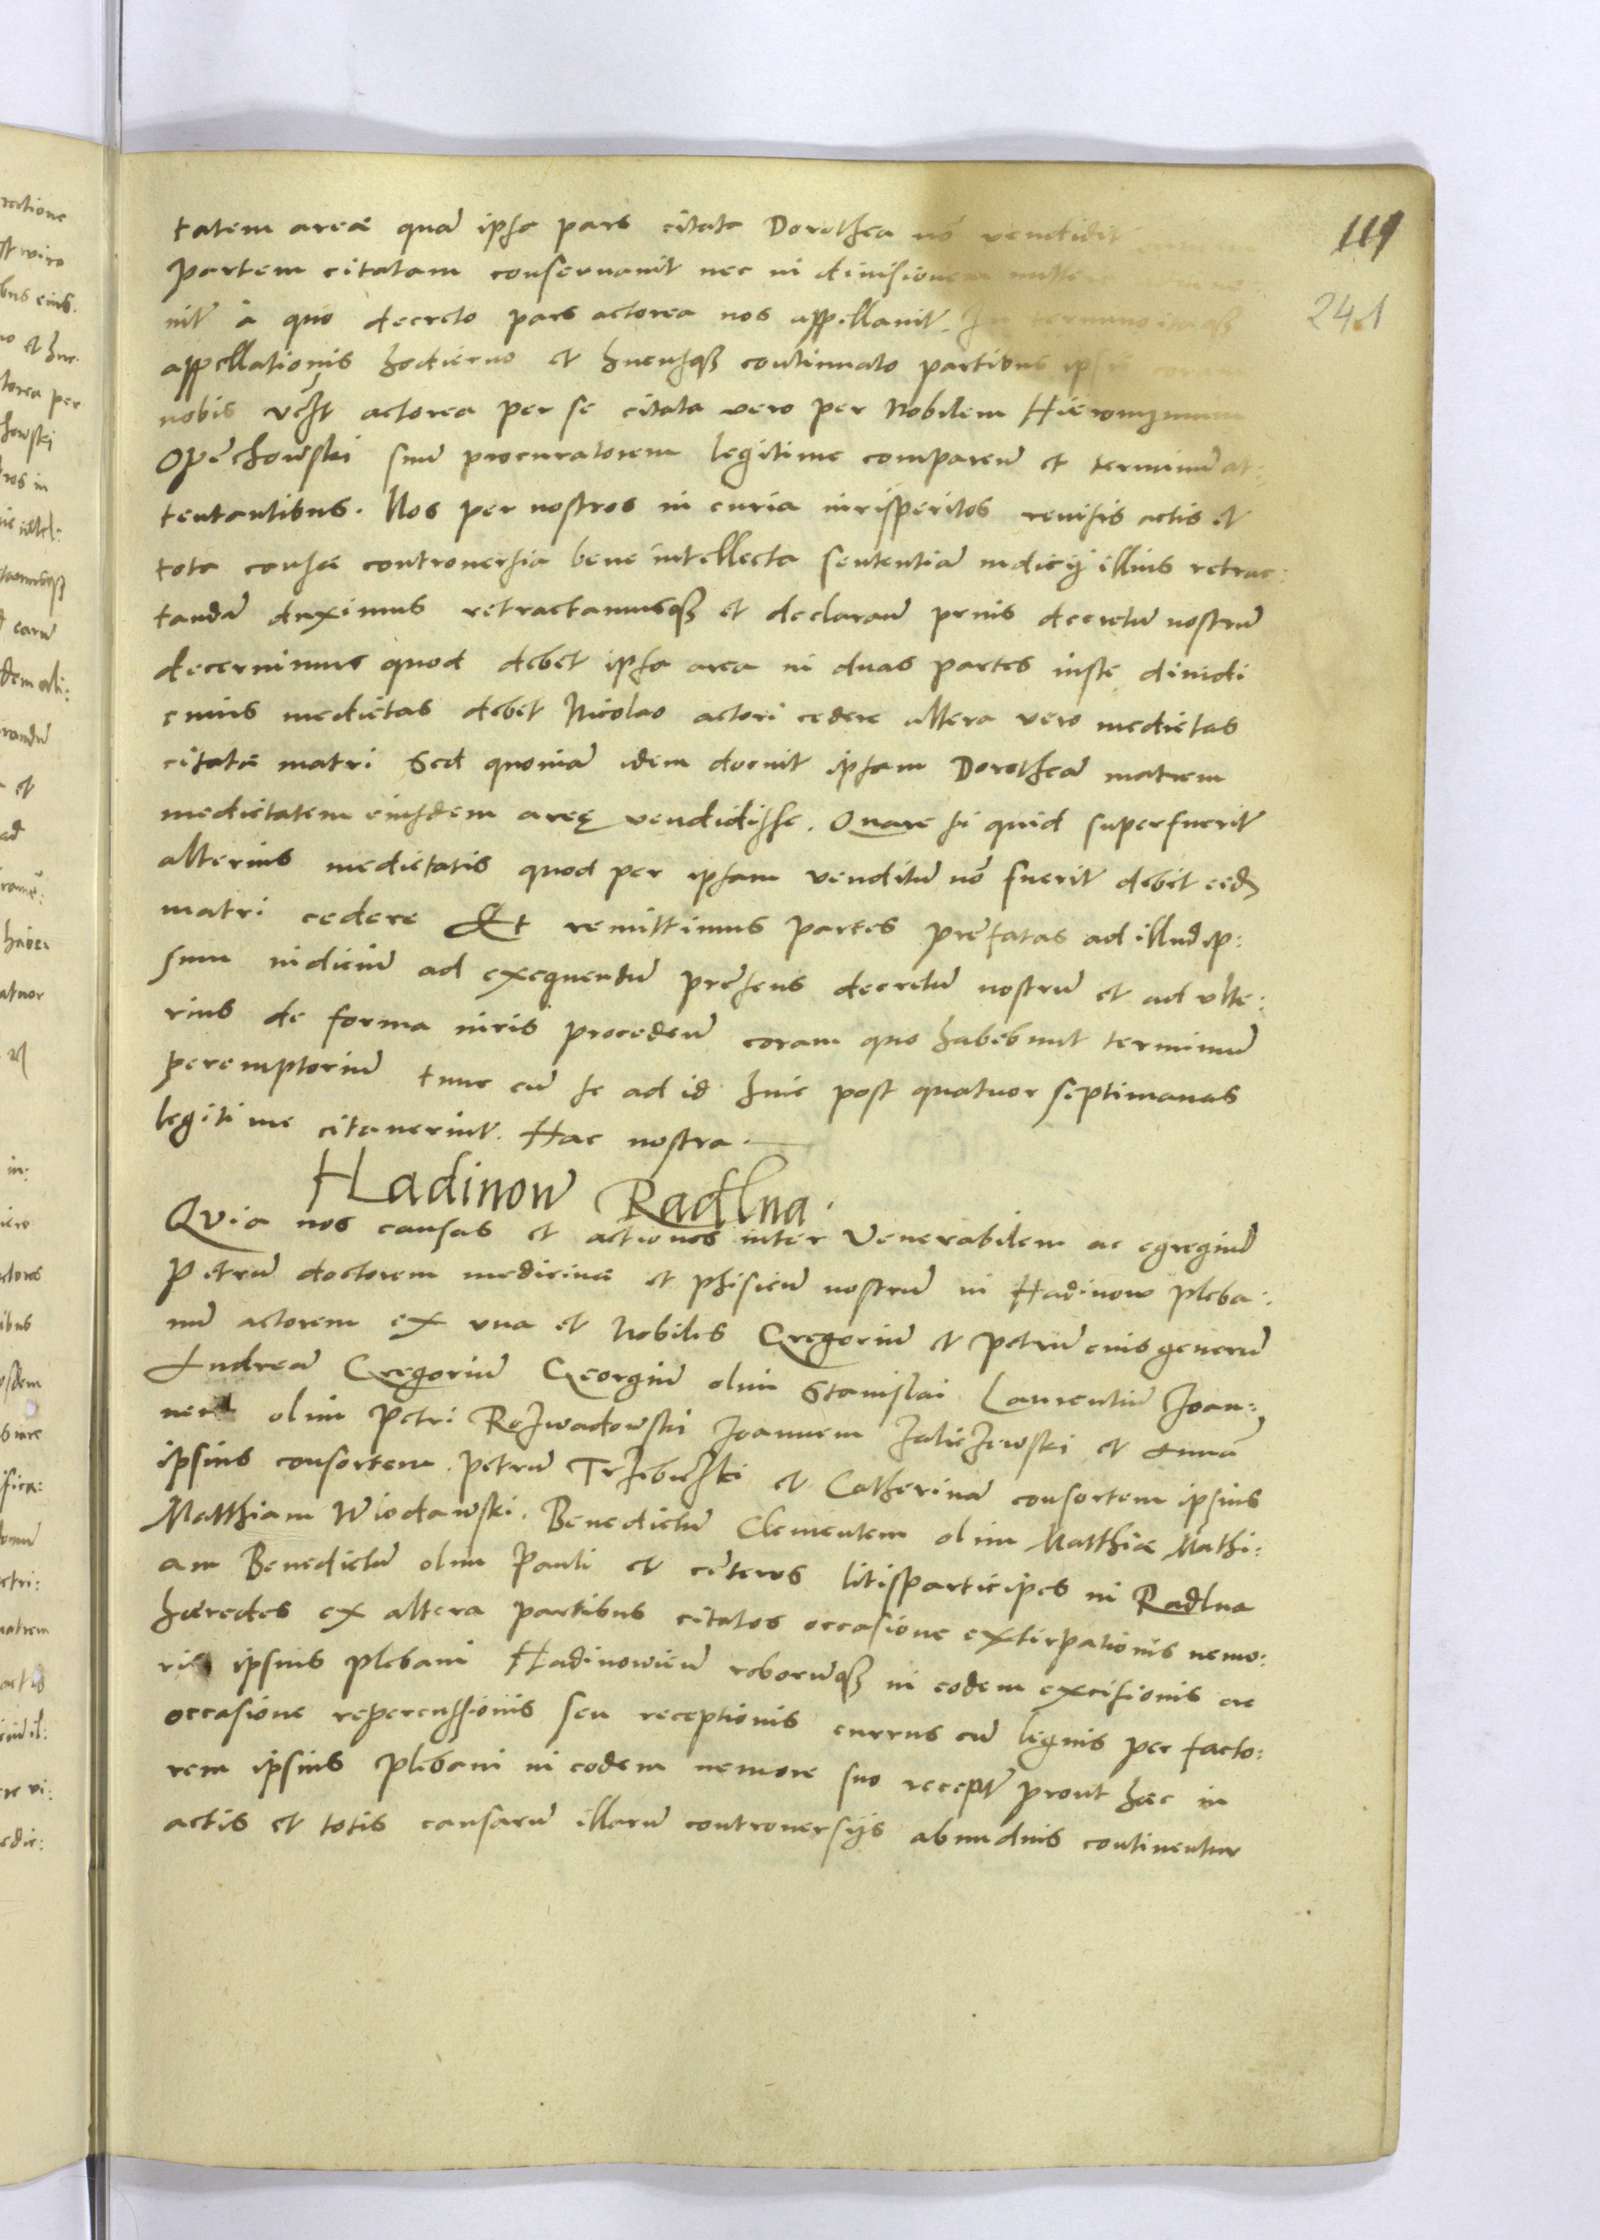 119
241
tatem areæ quā ipsa pars citata Dorothea nō vendidit
partem citatam conseruauit nec in diuisionem
uit à quo decreto pars actorea nos appellauit. In termino itaqȝ
appellationis hodierno et hucusqȝ continuato partibus ipsis coram
nobis actorea per se citata vero per Nobilem Hieronymum
Opechowski suū procuratorem legitime compareñ et terminū at:
tentantibus. Nos per nostros in curia iurisperitos reuisis actis et
tota causæ controuersia bene intellecta sententiā iudicij illius retrac:
tandā duximus retractamusqȝ et declaraūs pñis decretū nostrū
decernimus quod debet ipsa area in duas partes iuste diuidi
cuius medietas debet Nicolao actori cedere altera vero medietas
citatæ matri Sed quoniā idem docuit ipsam Dorotheā matrem
medietatem eiusdem areę vendidisse. Quare si quid superfuerit
alterius medietatis quod per ipsam venditū nō fuerit debet eidē
matri cedere Et remittimus partes præfatas ad illud ip:
sum iudiciū ad exequendū præsens decretū nostrū et ad vlte:
rius de forma iuris procedeñ coram quo habebunt terminū
peremptoriū tunc cū se ad id hinc post quatuor septimanas
legitime citauerint. Hac nostra.
Hadinow Radlna.
Quia nos causas et actiones inter Venerabilem ac egregiū
Petrū doctorem medicinæ et phisicū nostrū in Hadinow pleba:
num actorem ex vna et Nobiles Gregoriū et Petrū eius generū
Andreā Gregoriū Georgiū olim Stanislai Laurentiū Joan:
nem olim Petri Rozwadowski Joannem Zaliezewski et Annā
ipsius consortem. Petrū Trzebuski et Catherinā consortem ipsius
Matthiam Wlodawski. Benedictū Clementem olim Matthiæ Mathi:
am Benedictū olim Pauli et cæteros litisparticipes in Radlna
hæredes ex altera partibus citatos occasione extirpationis nemo:
ris ipsius plebani Hadinowieñ roborūqȝ in eodem excisionis ac
occasione repercussionis seu receptionis currus cū lignis per facto:
rem ipsius plebani in eodem nemore suo recepti prout hæc in
actis et totis causarū illarū controuersijs abundius continentur